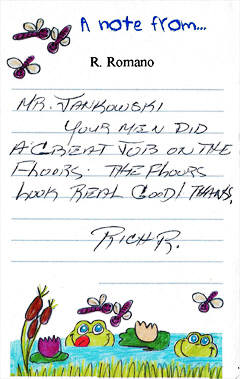 A note from...
R. Romano
MR. JANKOWSKI
YOUR MEN DID
A GREAT JOB ON THE
FLOORS. THE FLOORS
LOOK REAL GOOD! THANKS,
RICH R.